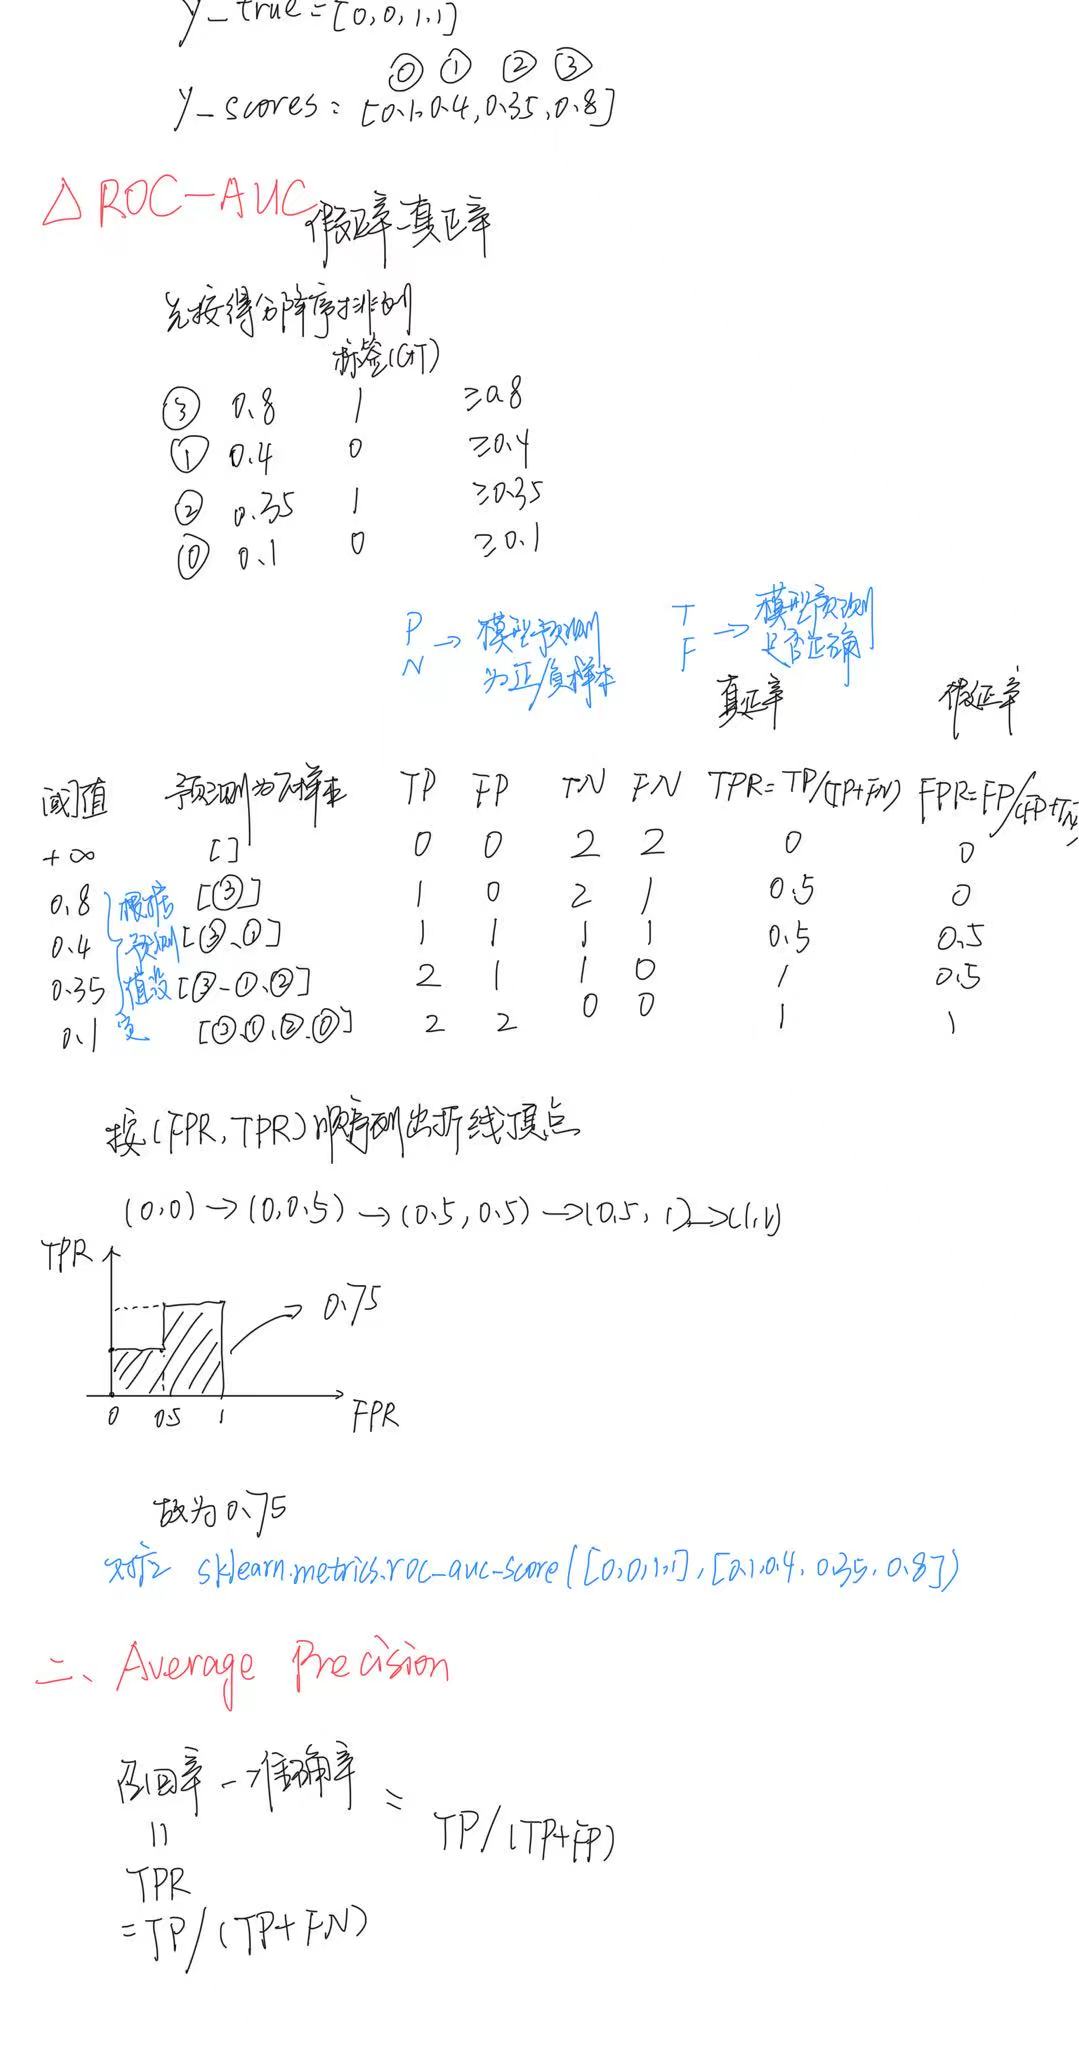 y_true=[0,0,1,1]
⓪ ① ② ③
y_scores=[0.1,0.4,0.35,0.8]
△ ROC-AUC 假正率-真正率
先按得分降序排列
标签(GT)
③ 0.8 1 ≥0.8
① 0.4 0 ≥0.4
② 0.35 1 ≥0.35
⓪ 0.1 0 ≥0.1
P N → 模型预测为正/负样本
T F → 模型预测是否正确
真正率 假正率
阈值 预测为正样本 TP FP TN FN TPR=TP/(TP+FN) FPR=FP/(FP+TN)
+∞ [] 0 0 2 2 0 0
0.8 [③] 1 0 2 1 0.5 0
0.4 [③、①] 1 1 1 1 0.5 0.5
0.35 [③、①、②] 2 1 1 0 1 0.5
0.1 [③、①、②、⓪] 2 2 0 0 1 1
根据预测值设定
按(FPR,TPR)顺序列出折线顶点
(0,0)→(0,0.5)→(0.5,0.5)→(0.5,1)→(1,1)
TPR
0.75
0 0.5 1 FPR
故为0.75
对应 sklearn.metrics.roc_auc_score([0,0,1,1],[0.1,0.4,0.35,0.8])
二、Average Precision
召回率→准确率 = TP/(TP+FP)
=
TPR
=TP/(TP+FN)